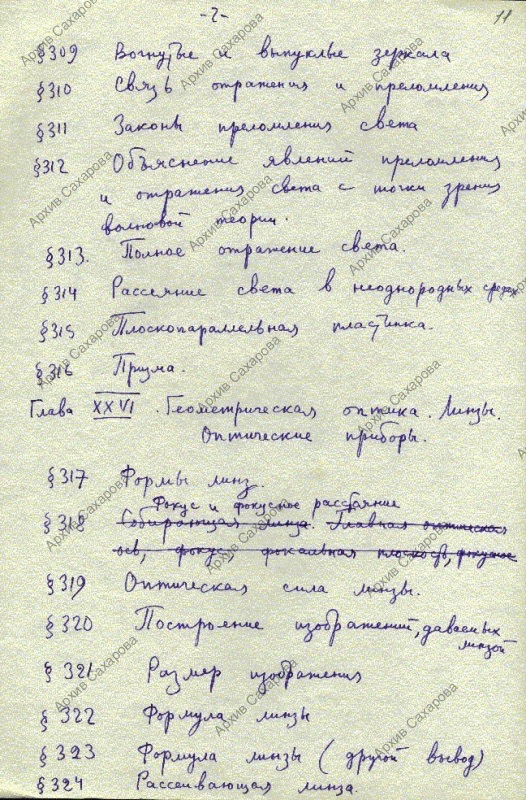 -2-
11
§309 Вогнутые и выпуклые зеркала
§310 Связь отражения и преломления
§311 Законы преломления света
§312 Объяснение явлений преломления
и отражения света с точки зрения
волновой теории.
§313. Полное отражение света.
§314 Рассеяние света в неоднородных средах
§315 Плоскопараллельная пластинка.
§316 Призма.
Глава XXVI. Геометрическая оптика. Линзы.
Оптические приборы.
§317 Формы линз.
Фокус и фокусное расстояние
§318 Собирающая линза. Главная оптическая
ось, фокус, фокальная плоскость, фокусное
§319 Оптическая сила линзы.
§320 Построение изображений, даваемых
линзой
§321 Размер изображения
§322 Формула линзы
§323 Формула линзы (другой вывод)
§324 Рассеивающая линза.
Архив Сахарова